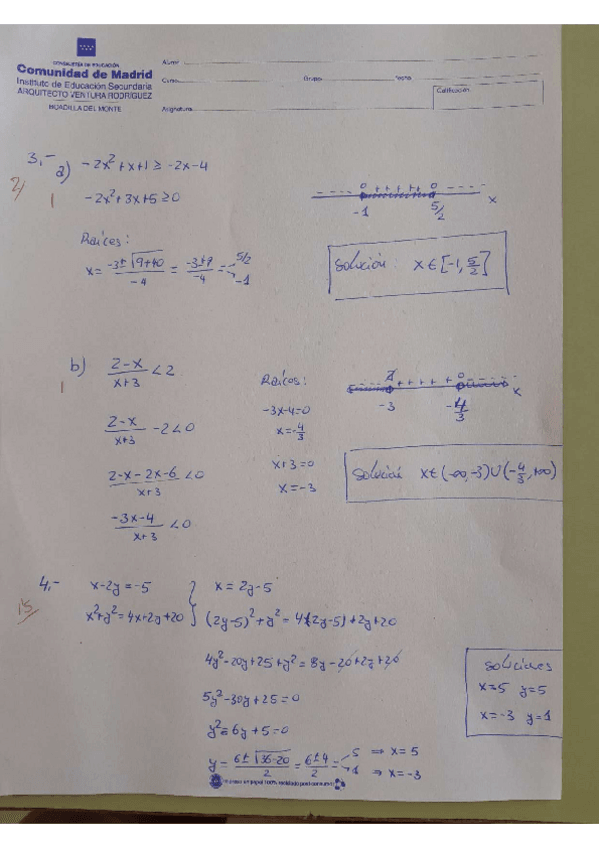 CONSEJERÍA DE EDUCACIÓN
Comunidad de Madrid
Instituto de Educación Secundaria
ARQUITECTO VENTURA RODRÍGUEZ
BOADILLA DEL MONTE
Alumn
Curso
Grupo
Fecha
Calificación
Asignatura
3.- a) -2x²+x+1 ≥ -2x-4
2/
1
-2x²+3x+5 ≥ 0
- - - 0 + + + + 0 - - -
-1 5/2 x
Raíces:
x = (-3±√(9+40))/-4 = (-3±7)/-4 = 5/2
-1
Solución: x ∈ [-1, 5/2]
b) (2-x)/(x+3) < 2
1
Raíces:
-3x-4=0
x=-4/3
x+3=0
x=-3
+ + + + + 0
-3 -4/3 x
(2-x)/(x+3) - 2 < 0
(2-x-2x-6)/(x+3) < 0
Solución x ∈ (-∞,-3) U (-4/3, +∞)
(-3x-4)/(x+3) < 0
4.- x-2y=-5 } x = 2y-5
x²+y²=4x+2y+20 } (2y-5)²+y² = 4(2y-5)+2y+20
4y²-20y+25+y² = 8y-20+2y+20
5y²-30y+25=0
y²-6y+5=0
y = (6±√(36-20))/2 = (6±4)/2 = 5 ⇒ x=5
1 ⇒ x=-3
Soluciones
x=5 y=5
x=-3 y=1
Impreso en papel 100% reciclado post-consumo